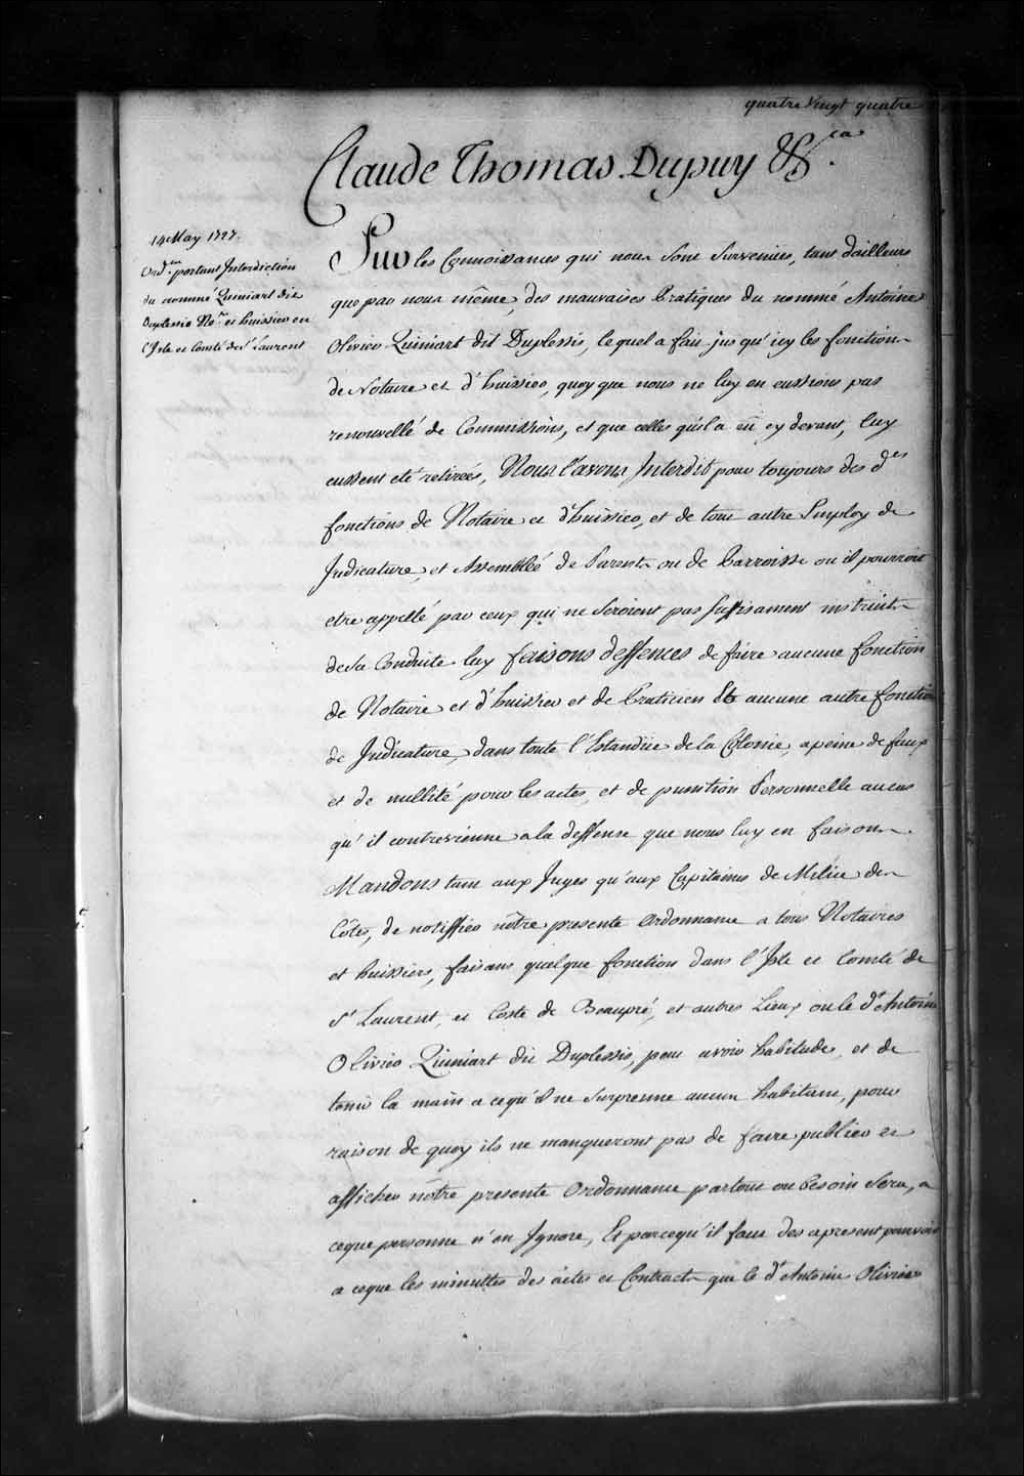 quatre Vingt quatre
Claude Thomas Dupuy &c.ca
14 May 1727.
Ord.ce portant Interdiction
du nommé Quiniart dit
Duplessis No.re et huissier en
l'Isle et Comté de St Laurent
Sur les Connoissances qui nous sont survenües, tant dailleurs
que par nous même, des mauvaises Pratiques du nommé Antoine
Olivier Quiniart dit Duplessis, lequel a fait jus qu'icy les fonctions
de Notaire et d'huissier, quoy que nous ne luy en eussions pas
renouvellé de Commissions, et que celles qu'il a eü cy devant, luy
eussent eté retireés, Nous l'avons Interdit pour toujours des d.es
fonctions de Notaire et d'huissier, et de tout autre Employ de
Judicature, et Assemblée de Parents ou de Parroisse ou il pourroit
etre appellé par ceux qui ne seroient pas suffisament instruits
de sa Conduite luy faisons deffences de faire aucune fonction
de Notaire et d'huissier et de Praticien & aucune autre fonction
de Judicature, dans toute l'Etandüe de la Colonie, a peine de faux
et de nullité pour les actes, et de punition Personnelle au cas
qu'il contrevienne a la deffense que nous luy en faisons.
Mandons tant aux Juges qu'aux Capitaines de Milice des
Côtes, de notiffier nôtre presente Ordonnance a tous Notaires
et huissiers, faisans quelque fonction dans l'Isle et Comté de
St Laurent, et Coste de Beaupré, et autres Lieux ou le dt Antoine
Olivier Quiniart dit Duplessis, peut avoir habitude, et de
tenir la main a cequ'il ne surprenne aucun habitant, pour
raison de quoy ils ne manqueront pas de faire publier et
afficher nôtre presente Ordonnance partout ou besoin sera, a
ceque personne n'en Ignore, Et parcequ'il faut des apresent pourvoir
a ceque les minuttes des actes et Contracts que le dt Antoine Olivier